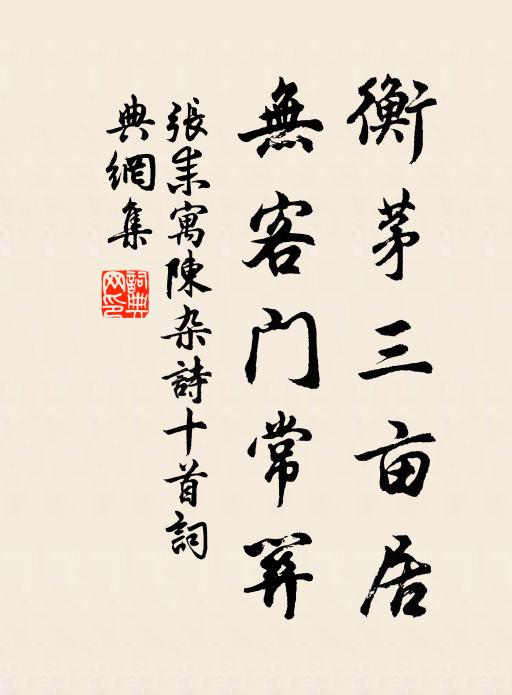 衡茅三亩居
無客门常关
張耒寓陳杂詩十首詞
典網集
詞典
网印